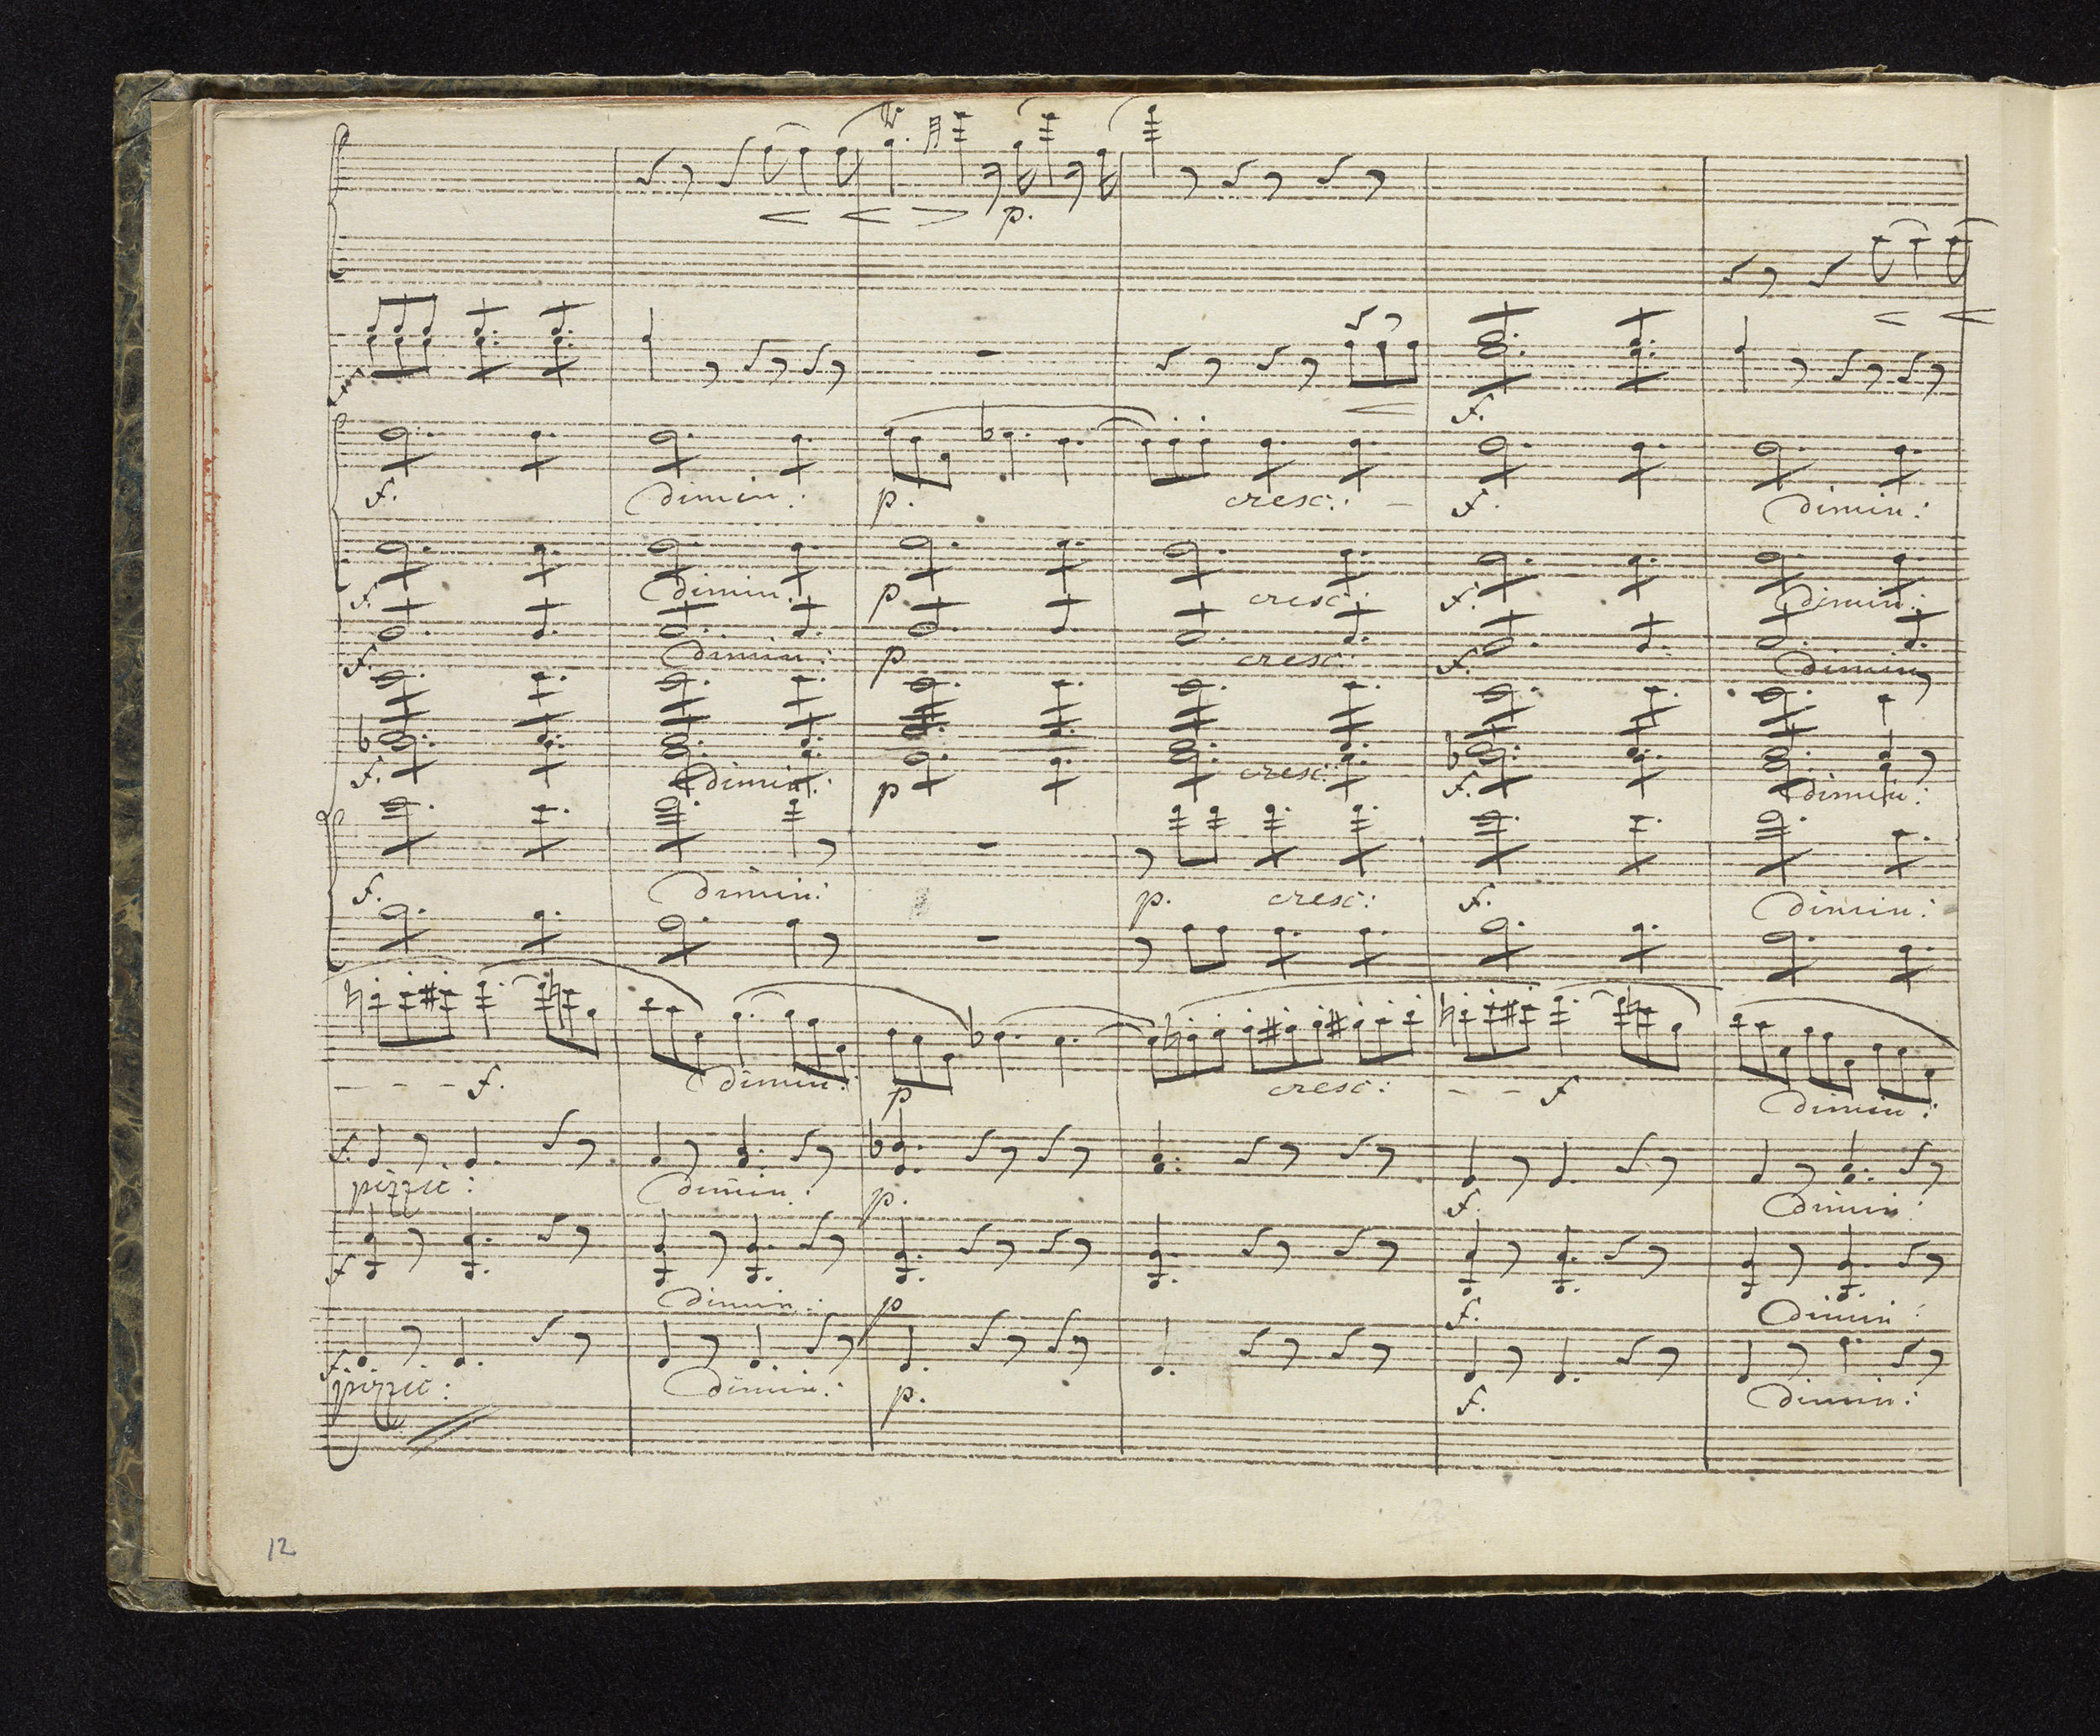 p.
f.
f. dimin: p. cresc: f. dimin:
f. dimin. p cresc: f. dimin:
f. dimin: p cresc: f. dimin
f. dimin: p cresc: f. dimin:
f. dimin: p. cresc: f. dimin:
f. dimin: p cresc: f dimin:
f. pizzic: dimin: p. f. dimin:
f dimin: p f. dimin:
f. pizzic: dimin: p. f. dimin:
12